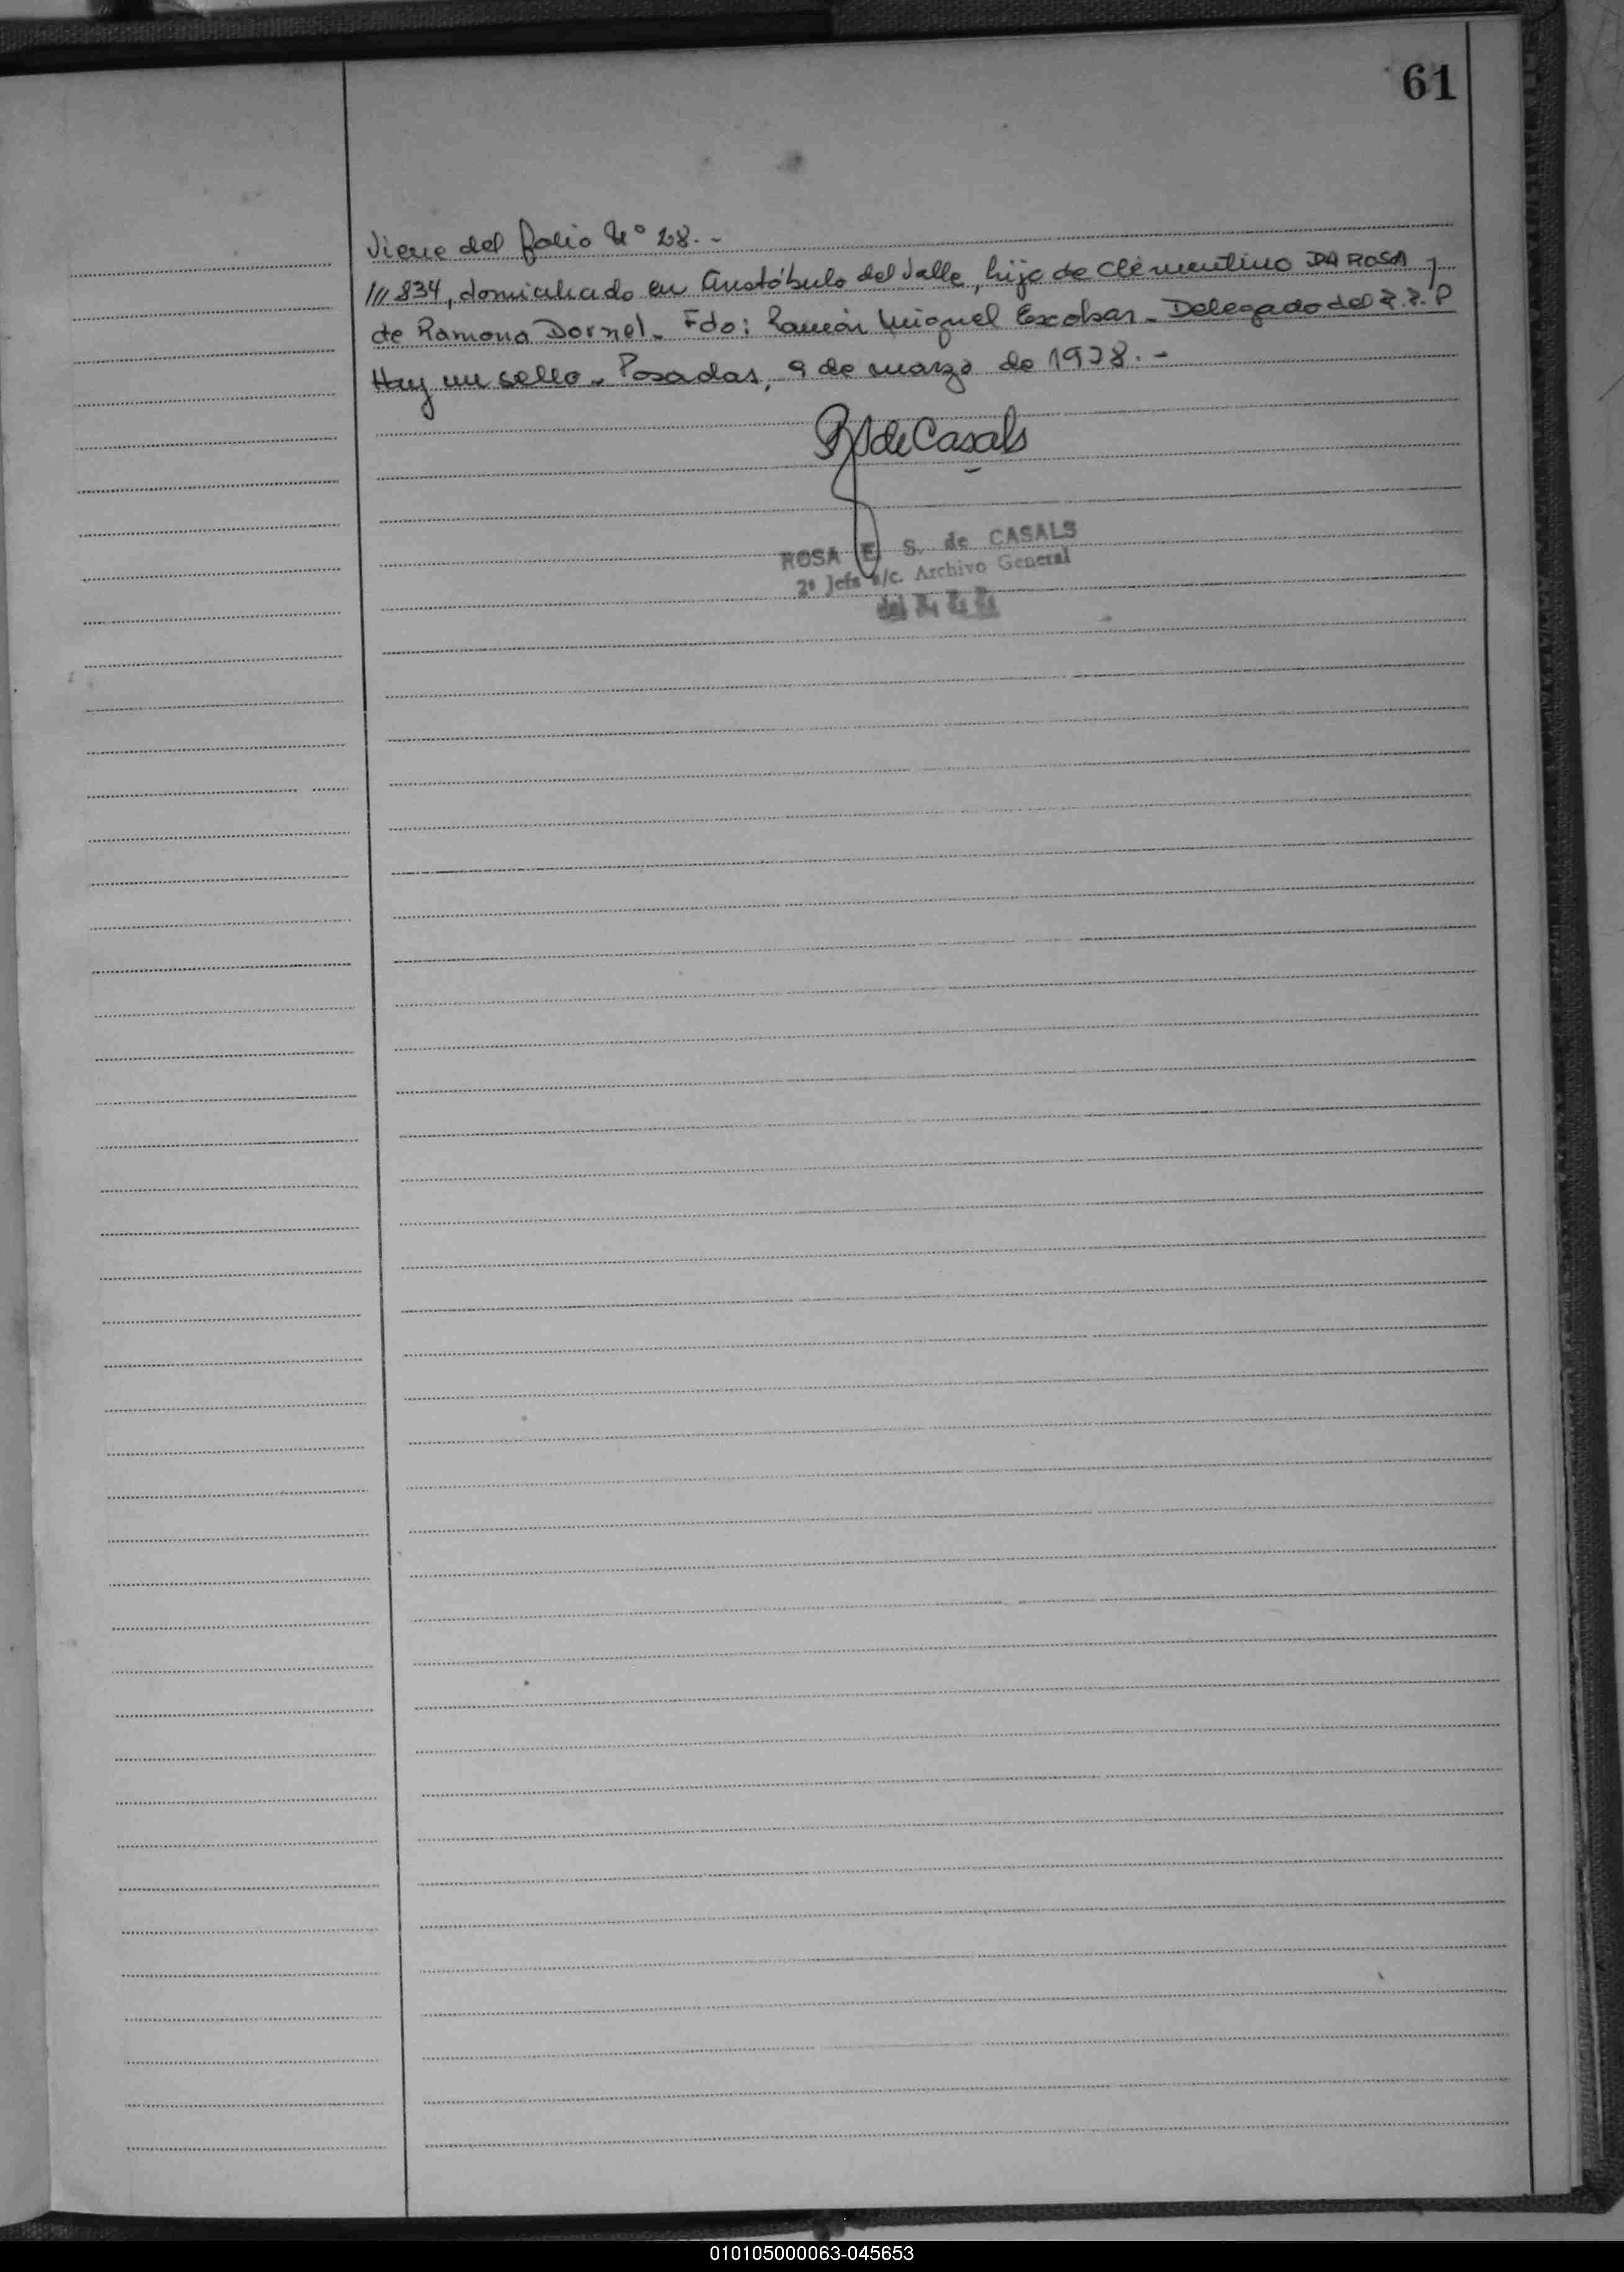 61
Viene del folio Nº 28.-
/// 834, domiciliado en Aristóbulo del Valle, hijo de Clementino DA ROSA y
de Ramona Dornel. Fdo: Ramón Miguel Escobar. Delegado del R.P.P
Hay un sello. Posadas, 9 de marzo de 1978.-
R S de Casals
ROSA E. S. de CASALS
2º Jefa a/c. Archivo General
del
010105000063-045653